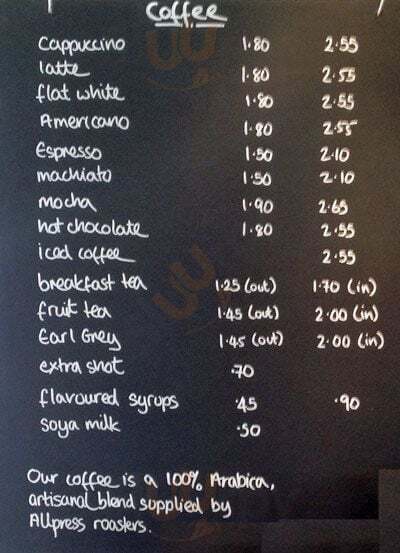 Coffee
Cappuccino 1.80 2.55
latte 1.80 2.55
flat white 1.80 2.55
Americano 1.80 2.55
Espresso 1.50 2.10
machiato 1.50 2.10
mocha 1.90 2.65
hot chocolate 1.80 2.55
iced coffee 2.55
breakfast tea 1.25 (out) 1.70 (in)
fruit tea 1.45 (out) 2.00 (in)
Earl Grey 1.45 (out) 2.00 (in)
extra shot .70
flavoured syrups .45 .90
soya milk .50
Our coffee is a 100% Arabica,
artisanal blend supplied by
Allpress roasters.